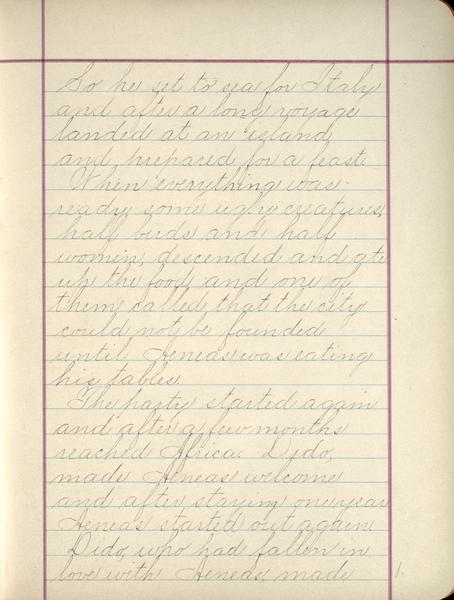 So he set to sea for Italy
and after a long voyage
landed at an island
and prepared for a feast.
When everything was
ready some ugly creatures,
half birds and half
women, descended and ate
up the food and one of
them called that the city
could not be founded
until Aeneas was eating
his tables.
The party started again
and after a few months
reached Africa. Dido,
made Aeneas welcome
and after staying one year
Aeneas started out again.
Dido, who had fallen in
love with Aeneas, made
1.